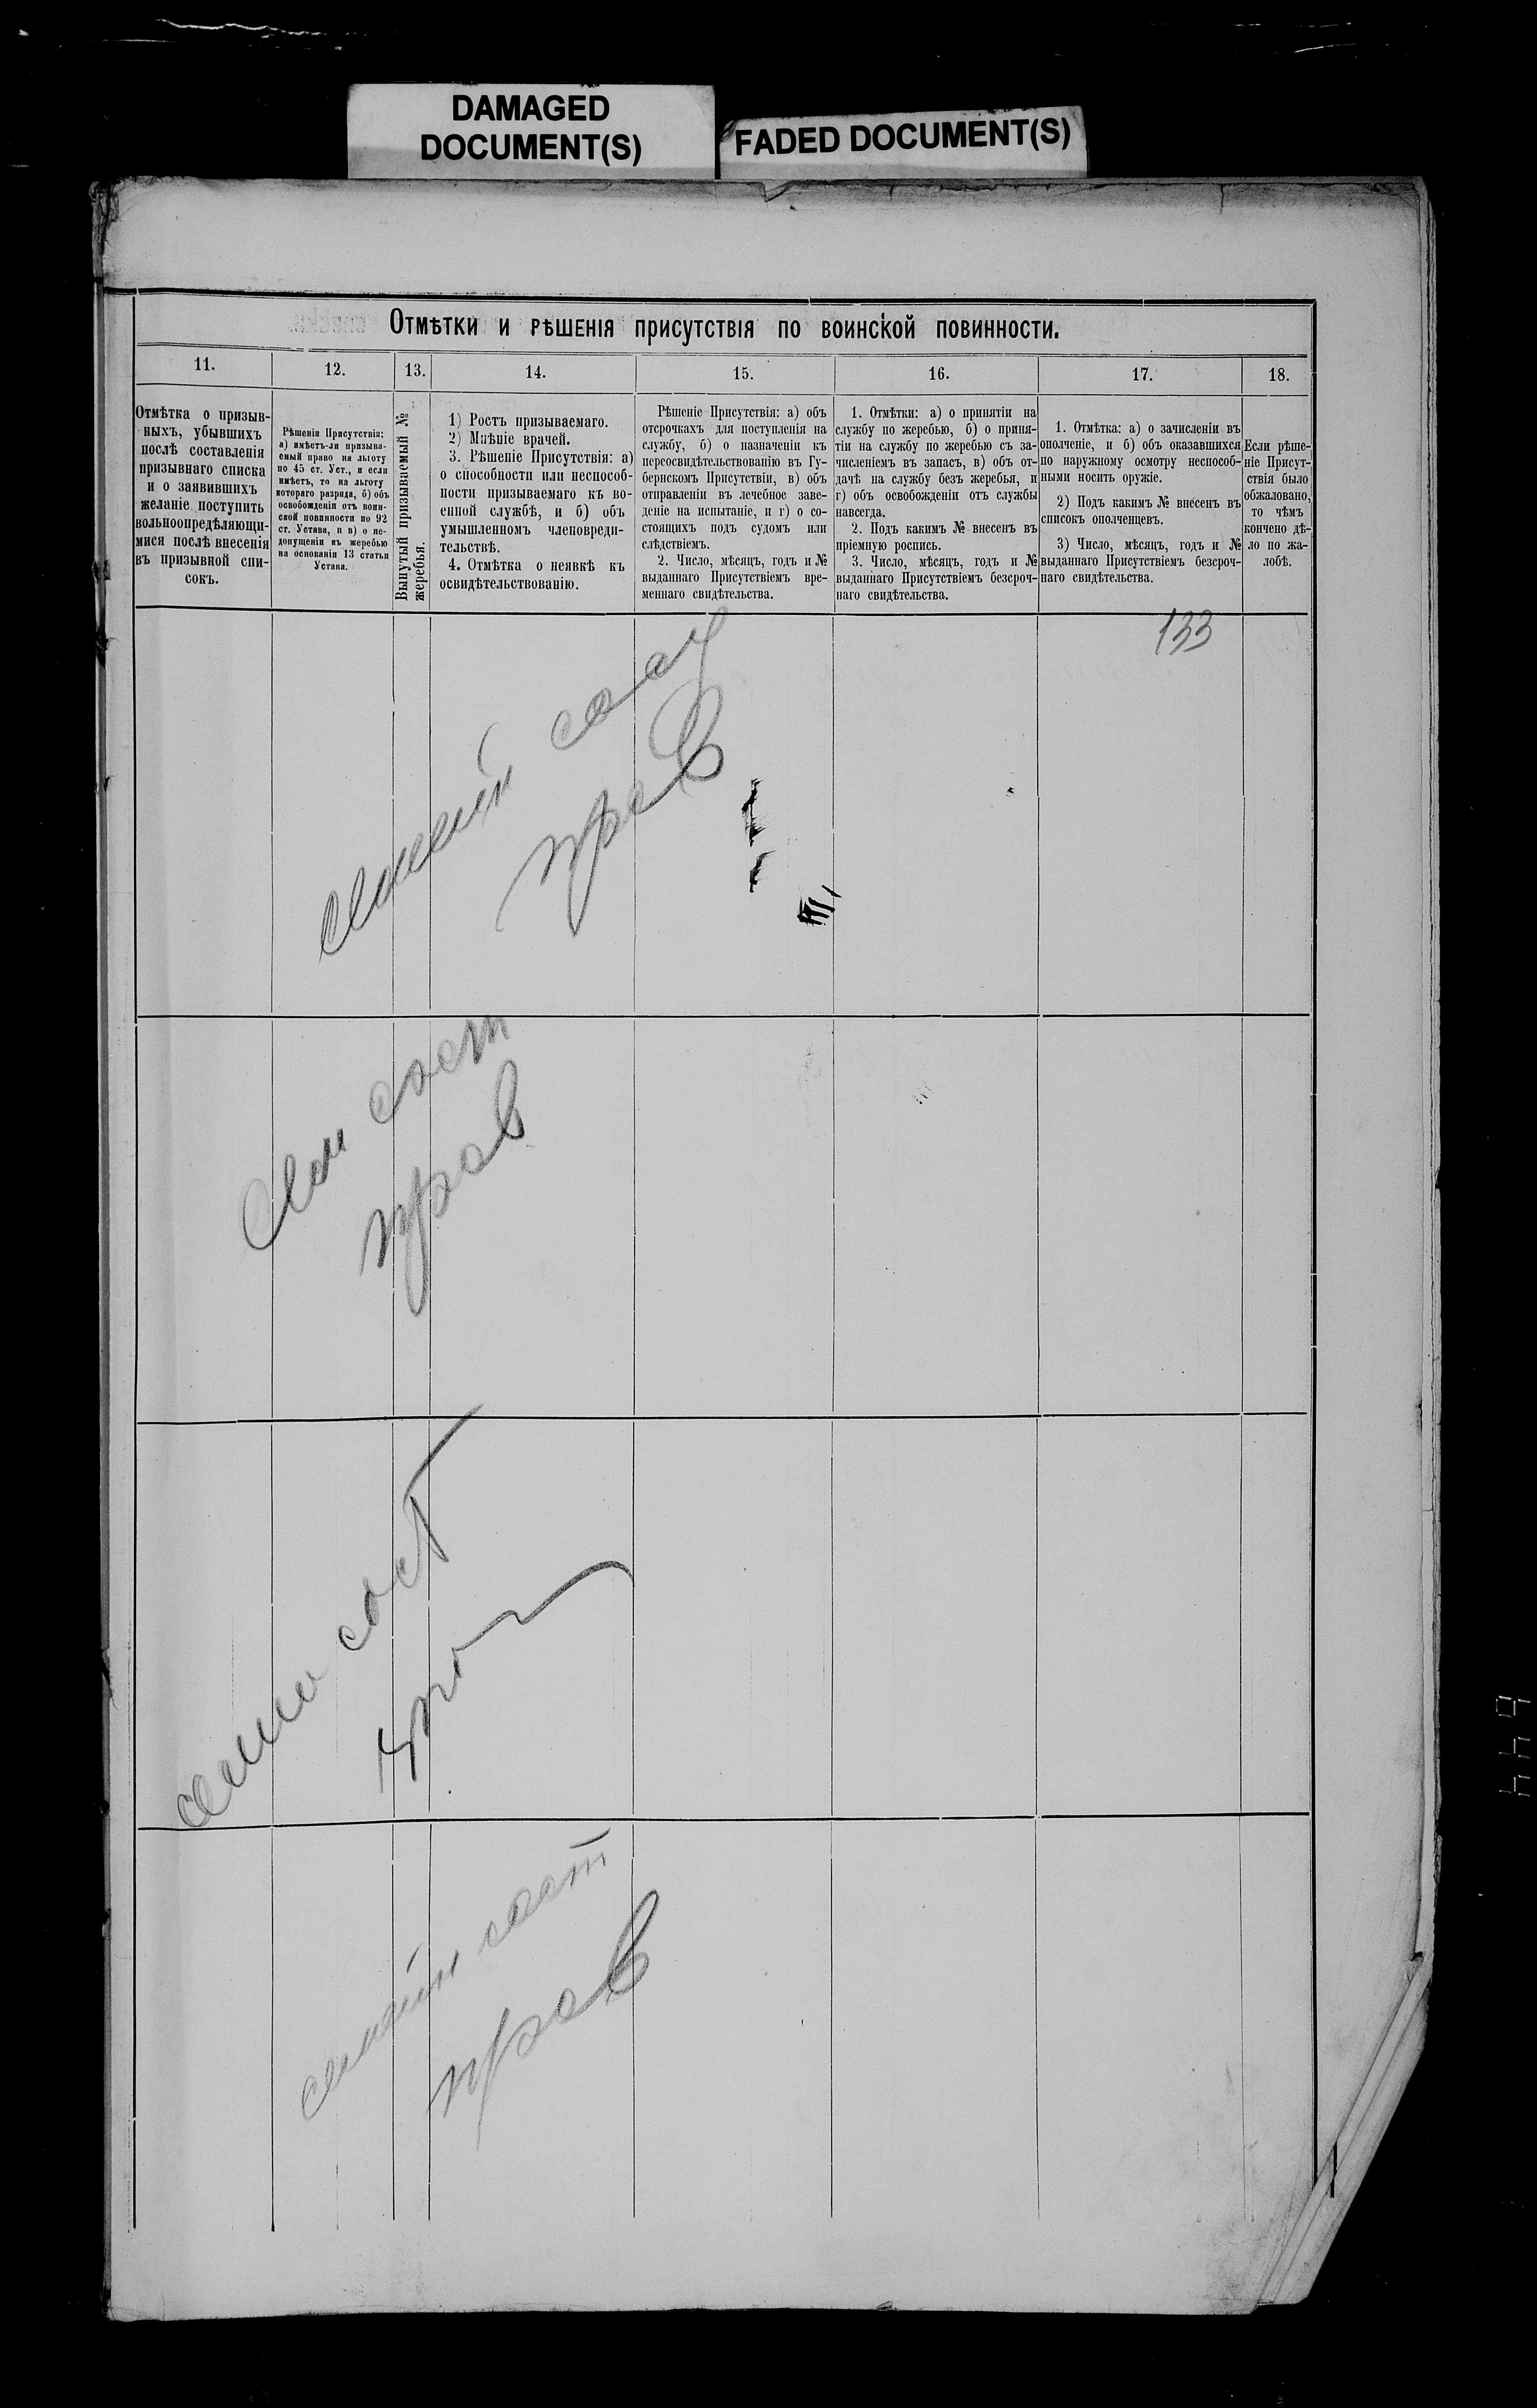 DAMAGED
DOCUMENT(S)
FADED DOCUMENT(S)
Отмѣтки и рѣшенія присутствія по воинской повинности.
11.
12.
13.
14.
15.
16.
17.
18.
Отмѣтка о призыв-
ныхъ, убывшихъ
послѣ составленія
призывнаго списка
и о заявившихъ
желаніе поступить
вольноопредѣляющи-
мися послѣ внесенія
въ призывной спи-
сокъ.
Рѣшенія Присутствія:
а) имѣетъ-ли призыва-
емый право на льготу
по 45 ст. Уст., и если
имѣетъ, то на льготу
котораго разряда, б) объ
освобожденіи отъ воин-
ской повинности по 92
ст. Устава, и в) о не-
допущеніи къ жеребью
на основаніи 13 статьи
Устава.
Вынутый призываемый №
жеребья.
1) Ростъ призываемаго.
2) Мнѣніе врачей.
3. Рѣшеніе Присутствія: а)
о способности или неспособ-
ности призываемаго къ во-
енной службѣ, и б) объ
умышленномъ членовреди-
тельствѣ.
4. Отмѣтка о неявкѣ къ
освидѣтельствованію.
Рѣшеніе Присутствія: а) объ
отсрочкахъ для поступленія на
службу, б) о назначеніи къ
переосвидѣтельствованію въ Гу-
бернскомъ Присутствіи, в) объ
отправленіи въ лечебное заве-
деніе на испытаніе, и г) о со-
стоящихъ подъ судомъ или
слѣдствіемъ.
2. Число, мѣсяцъ, годъ и №
выданнаго Присутствіемъ вре-
меннаго свидѣтельства.
1. Отмѣтки: а) о принятіи на
службу по жеребью, б) о приня-
тіи на службу по жеребью съ за-
численіемъ въ запасъ, в) объ от-
дачѣ на службу безъ жеребья, и
г) объ освобожденіи отъ службы
навсегда.
2. Подъ какимъ № внесенъ въ
пріемную роспись.
3. Число, мѣсяцъ, годъ и №
выданнаго Присутствіемъ безсроч-
наго свидѣтельства.
1. Отмѣтка: а) о зачисленіи въ
ополченіе, и б) объ оказавшихся
по наружному осмотру неспособ-
ными носить оружіе.
2) Подъ какимъ № внесенъ въ
списокъ ополченцевъ.
3) Число, мѣсяцъ, годъ и №
выданнаго Присутствіемъ безсроч-
наго свидѣтельства.
Если рѣше-
ніе Присут-
ствія было
обжаловано,
то чѣмъ
кончено дѣ-
ло по жа-
лобѣ.
133
прав
сост
прав
сост
семейн сост
прав